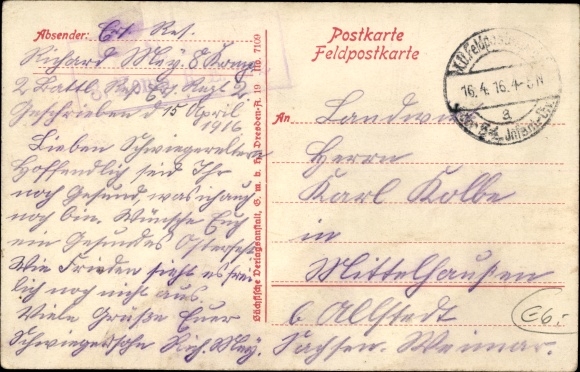 Absender: Ers. Res.
Richard Mey. 8 Komp.
2 Battl. Res. Ers. Regt. 2
Geschrieben d 15 April
1916
Lieben Schwiegereltern
Hoffendlich seid Ihr
noch Gesund, was ich auch
noch bin. Wünsche Euch
ein Gesundes Osterfest
Wie Frieden sieht es frei
lich noch nicht aus.
Viele Grüße Euer
Schwiegersohn Rich. Mey.
Sächsische Verlagsanstalt, G. m. b. H., Dresden-A. 19 No. 7109
Postkarte
Feldpostkarte
16.4.16. 4-5 N
a
An Landw
Herrn
Karl Kolbe
in
Mittelhausen
b Allstedt
Sachsen. Weimar.
6.-